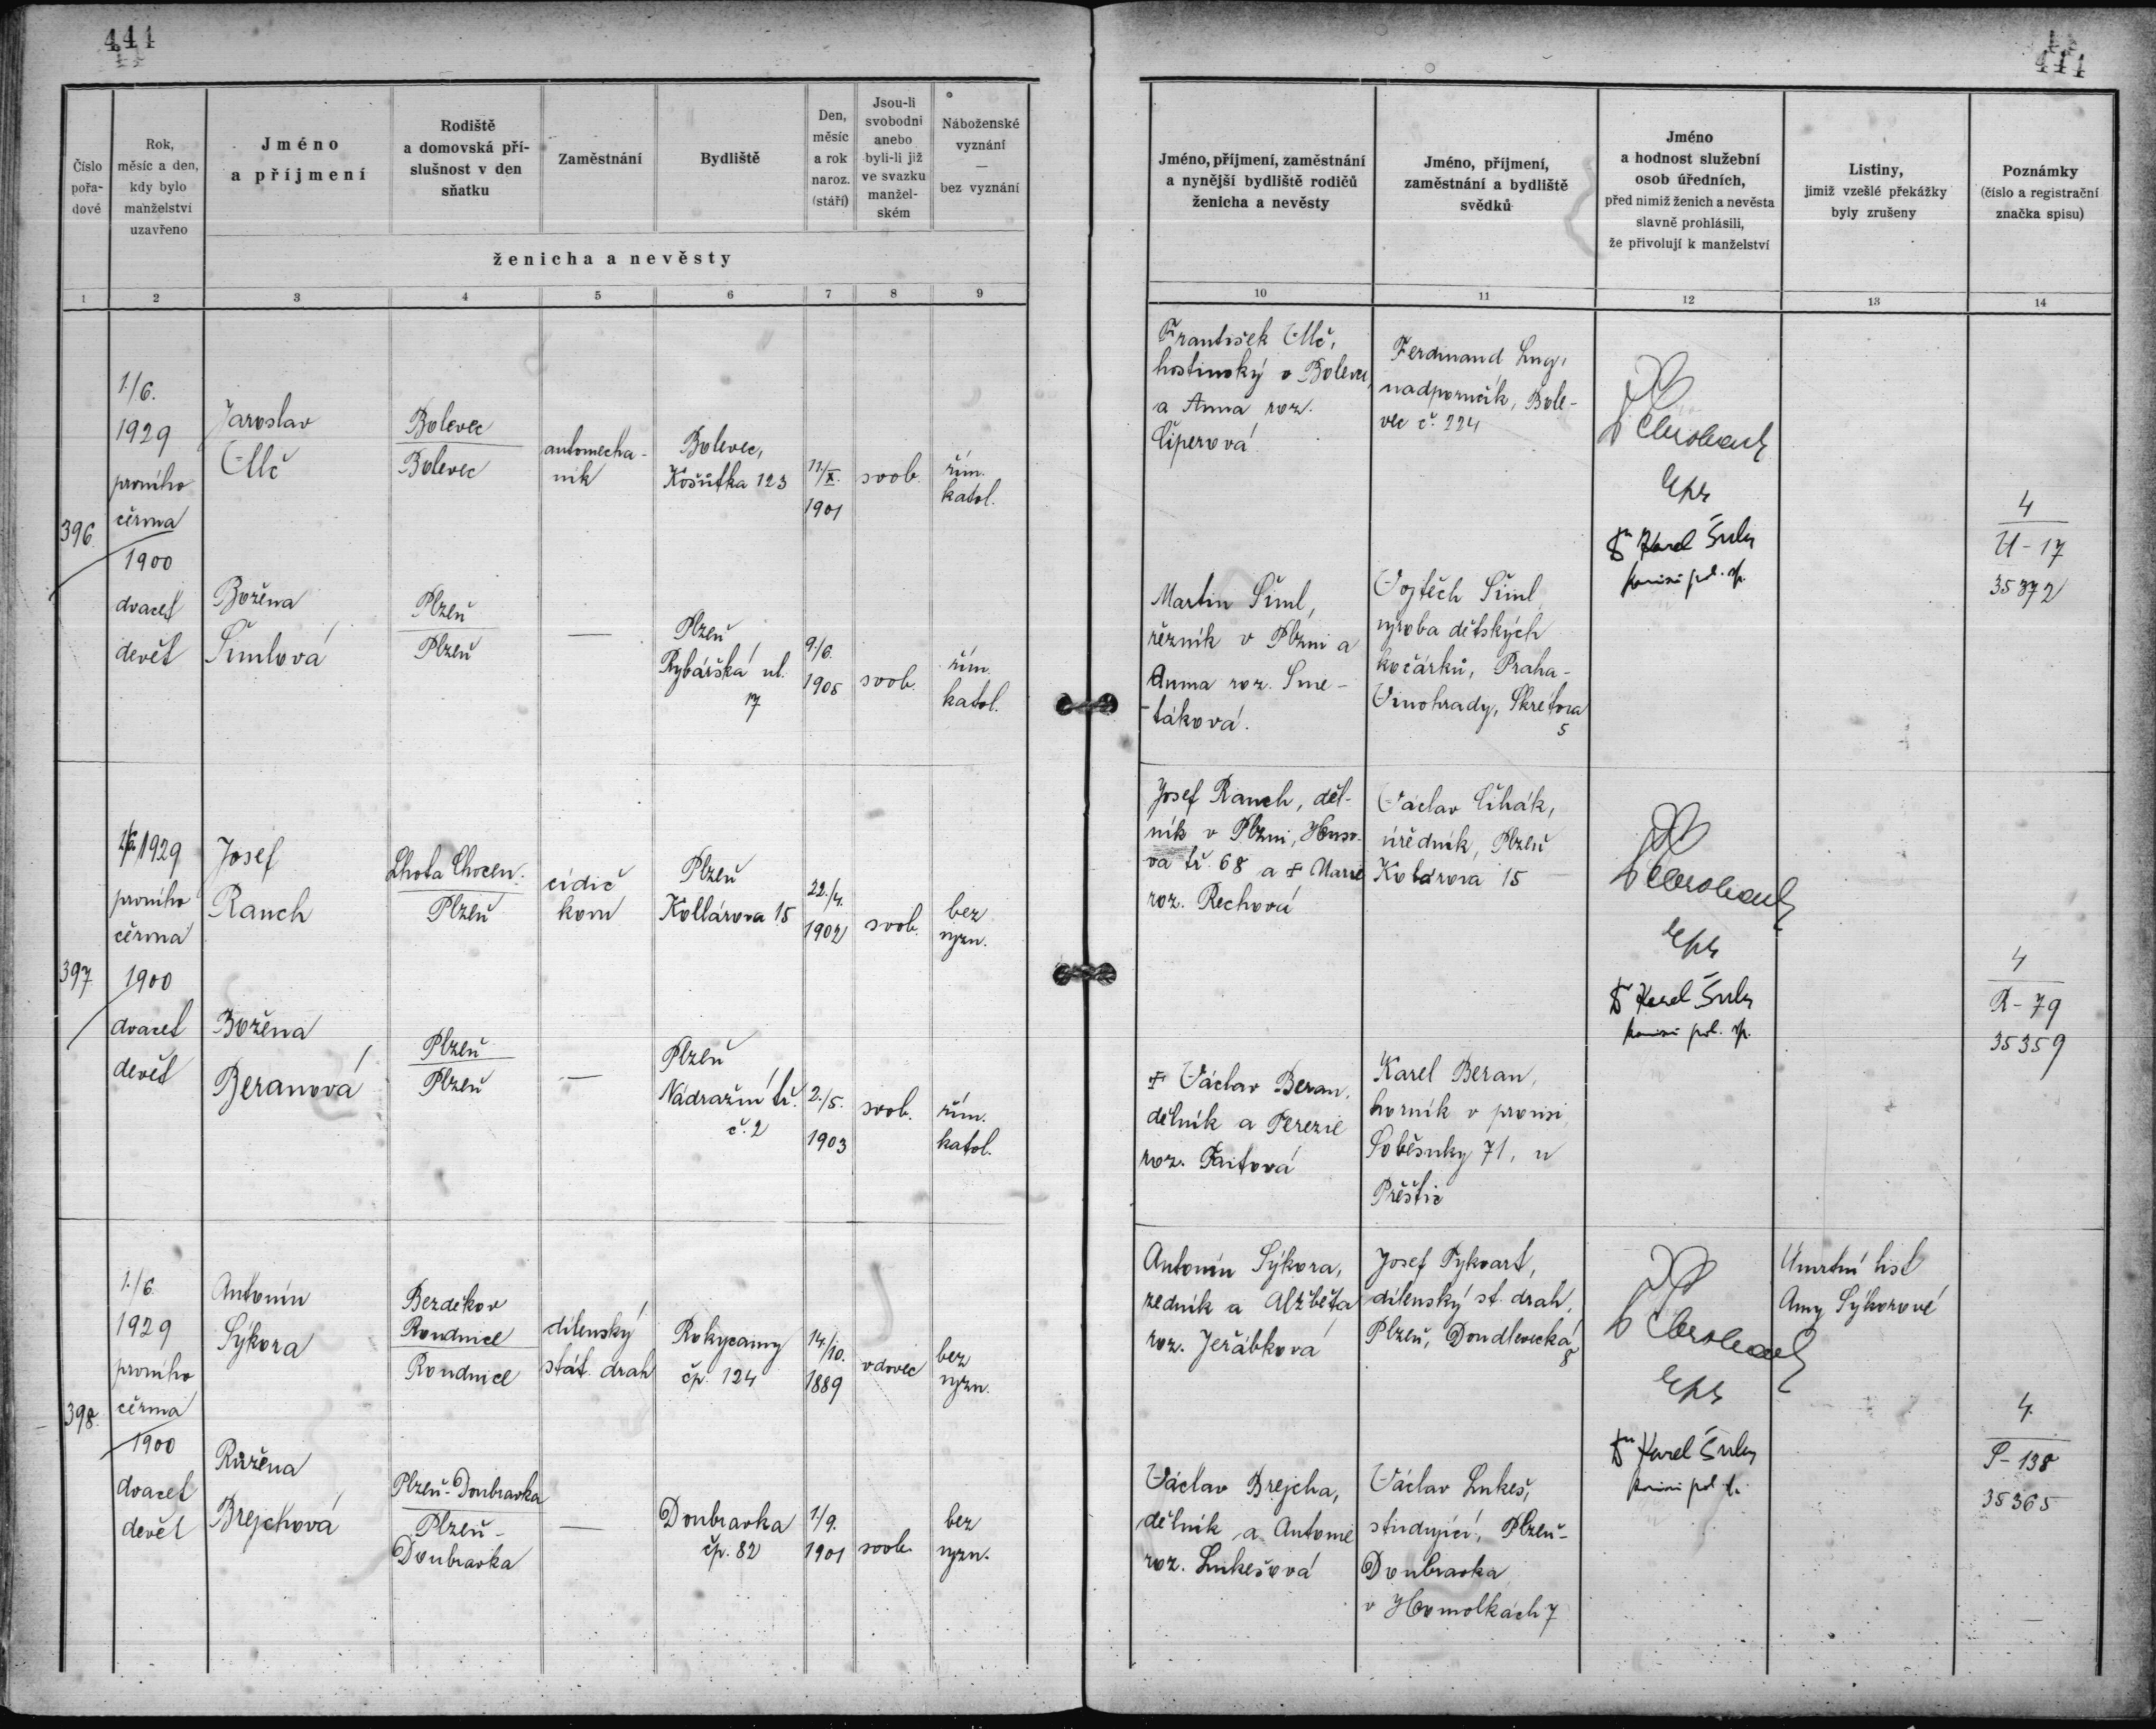 441
441
Číslo
pořa-
dové
Rok,
měsíc a den,
kdy bylo
manželství
uzavřeno
Jméno
a příjmení
Rodiště
a domovská pří-
slušnost v den
sňatku
Zaměstnání
Bydliště
Den,
měsíc
a rok
naroz.
(stáří)
Jsou-li
svobodni
anebo
byli-li již
ve svazku
manžel-
ském
Náboženské
vyznání
—
bez vyznání
ženicha a nevěsty
Jméno, příjmení, zaměstnání
a nynější bydliště rodičů
ženicha a nevěsty
Jméno, příjmení,
zaměstnání a bydliště
svědků
Jméno
a hodnost služební
osob úředních,
před nimiž ženich a nevěsta
slavně prohlásili,
že přivolují k manželství
Listiny,
jimiž vzešlé překážky
byly zrušeny
Poznámky
(číslo a registrační
značka spisu)
1 2 3 4 5 6 7 8 9 10 11 12 13 14
396
1./6.
1929
prvního
června
1900
dvacet
devět
Jaroslav
Ulč
Bolevec
Bolevec
automecha-
nik
Bolevec,
Košutka 123
11/X.
1901
svob.
řím.
katol.
František Ulč,
hostinský v Bolevci,
a Anna roz.
Čiperová
Ferdinand
nadporučík, Bole-
vec č. 224
Božena
Šimlová
Plzeň
Plzeň
—
Plzeň
Rybářská ul.
17
9./6.
1905
svob.
řím.
katol.
Martin Šiml,
řezník v Plzni a
Anna roz. Sme-
táková.
Vojtěch Šiml,
výroba dětských
kočárků, Praha-
Vinohrady, Škrétova
5
Dr Karel Šulc
4
U-17
35372
397
1/6. 1929
prvního
června
1900
dvacet
devět
Josef
Rauch
Lhota Chocen.
Plzeň
cídič
kovu
Plzeň
Kollárova 15
22./4.
1902
svob.
bez
vyzn.
Josef Rauch, děl-
ník v Plzni, Huso-
va tř. 68 a † Marie
roz. Rechová
Václav Cihák,
úředník, Plzeň
Kolárova 15
Božena
Beranová
Plzeň
Plzeň
—
Plzeň
Nádražní tř.
č. 2
2./5.
1903
svob.
řím.
katol.
† Václav Beran,
dělník a Terezie
roz. Faitová
Karel Beran,
horník v provisi
Soběsuky 71, u
Přeštic
Dr Karel Šulc
4
R-79
35359
398.
1./6.
1929
prvního
června
1900
dvacet
devět
Antonín
Sýkora
Bezděkov
Roudnice
Roudnice
dílenský
stát. drah
Rokycany
čp. 124
14./10.
1889
vdovec
bez
vyzn.
Antonín Sýkora,
zedník a Alžběta
roz. Jeřábková
Josef Tykvart,
dílenský st. drah,
Plzeň, Doudlevecká
8
Úmrtní list
Anny Sýkorové
Růžena
Brejchová
Plzeň-Doubravka
Plzeň-
Doubravka
—
Doubravka
čp. 82
1/9.
1901
svob.
bez
vyzn.
Václav Brejcha,
dělník a Antonie
roz. Lukešová
Václav Lukeš,
studující, Plzeň-
Doubravka
v Homolkách 7
Dr Karel Šulc
4.
35365